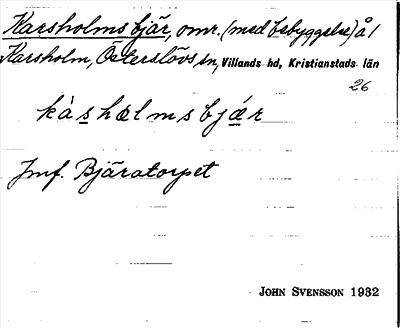 Karsholms bjär, omr. (med bebyggelse) å 1
Karsholm, Österslövs sn, Villands hd, Kristianstads län
26
kàshɶlmsbjǽr
Jmf. Bjäratorpet
JOHN SVENSSON 1932